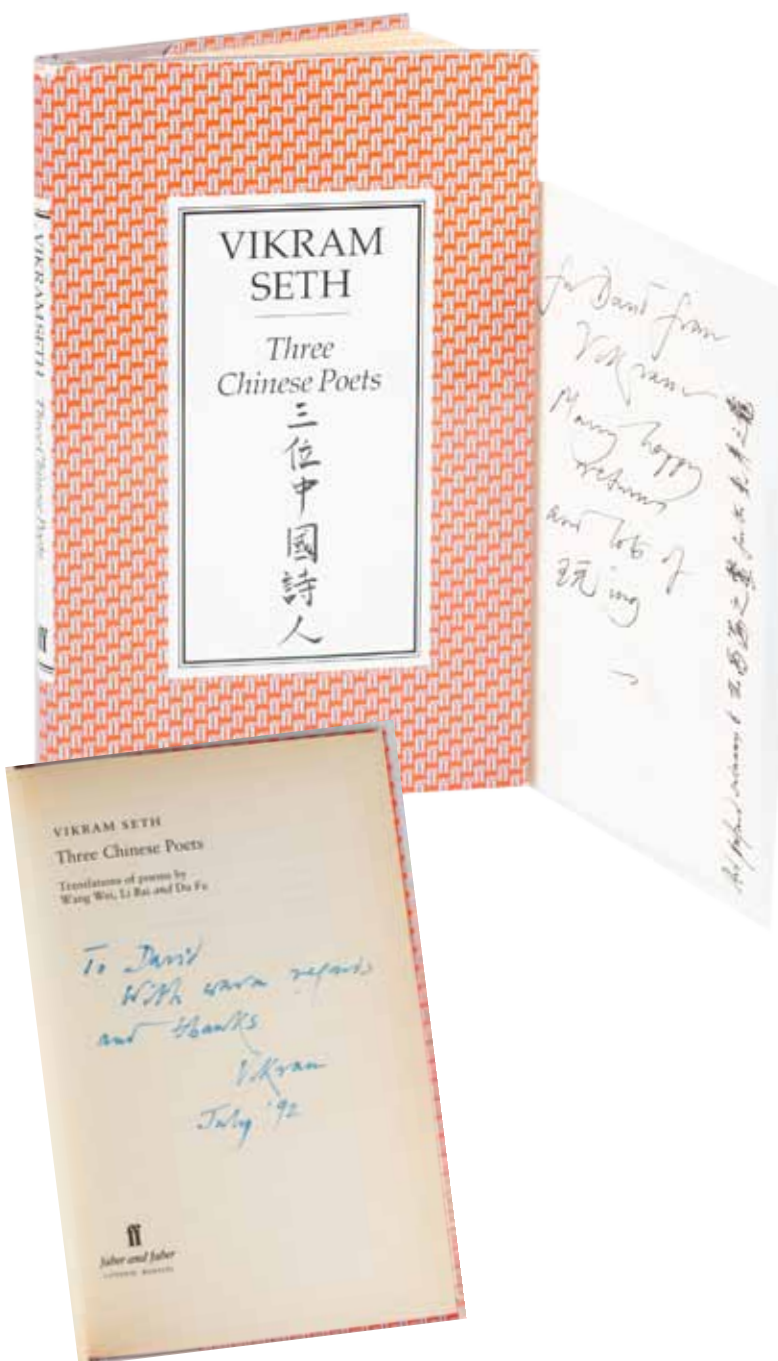 VIKRAM
SETH
Three
Chinese Poets
三
位
中
國
詩
人
ff
VIKRAM SETH
Three Chinese Poets
ff
for David from
Vikram
Many happy
returns
and lots of
玩ing
VIKRAM SETH
Three Chinese Poets
Translations of poems by
Wang Wei, Li Bai and Du Fu
To David
With warm regards
and thanks
Vikram
July '92
ff
faber and faber
LONDON · BOSTON